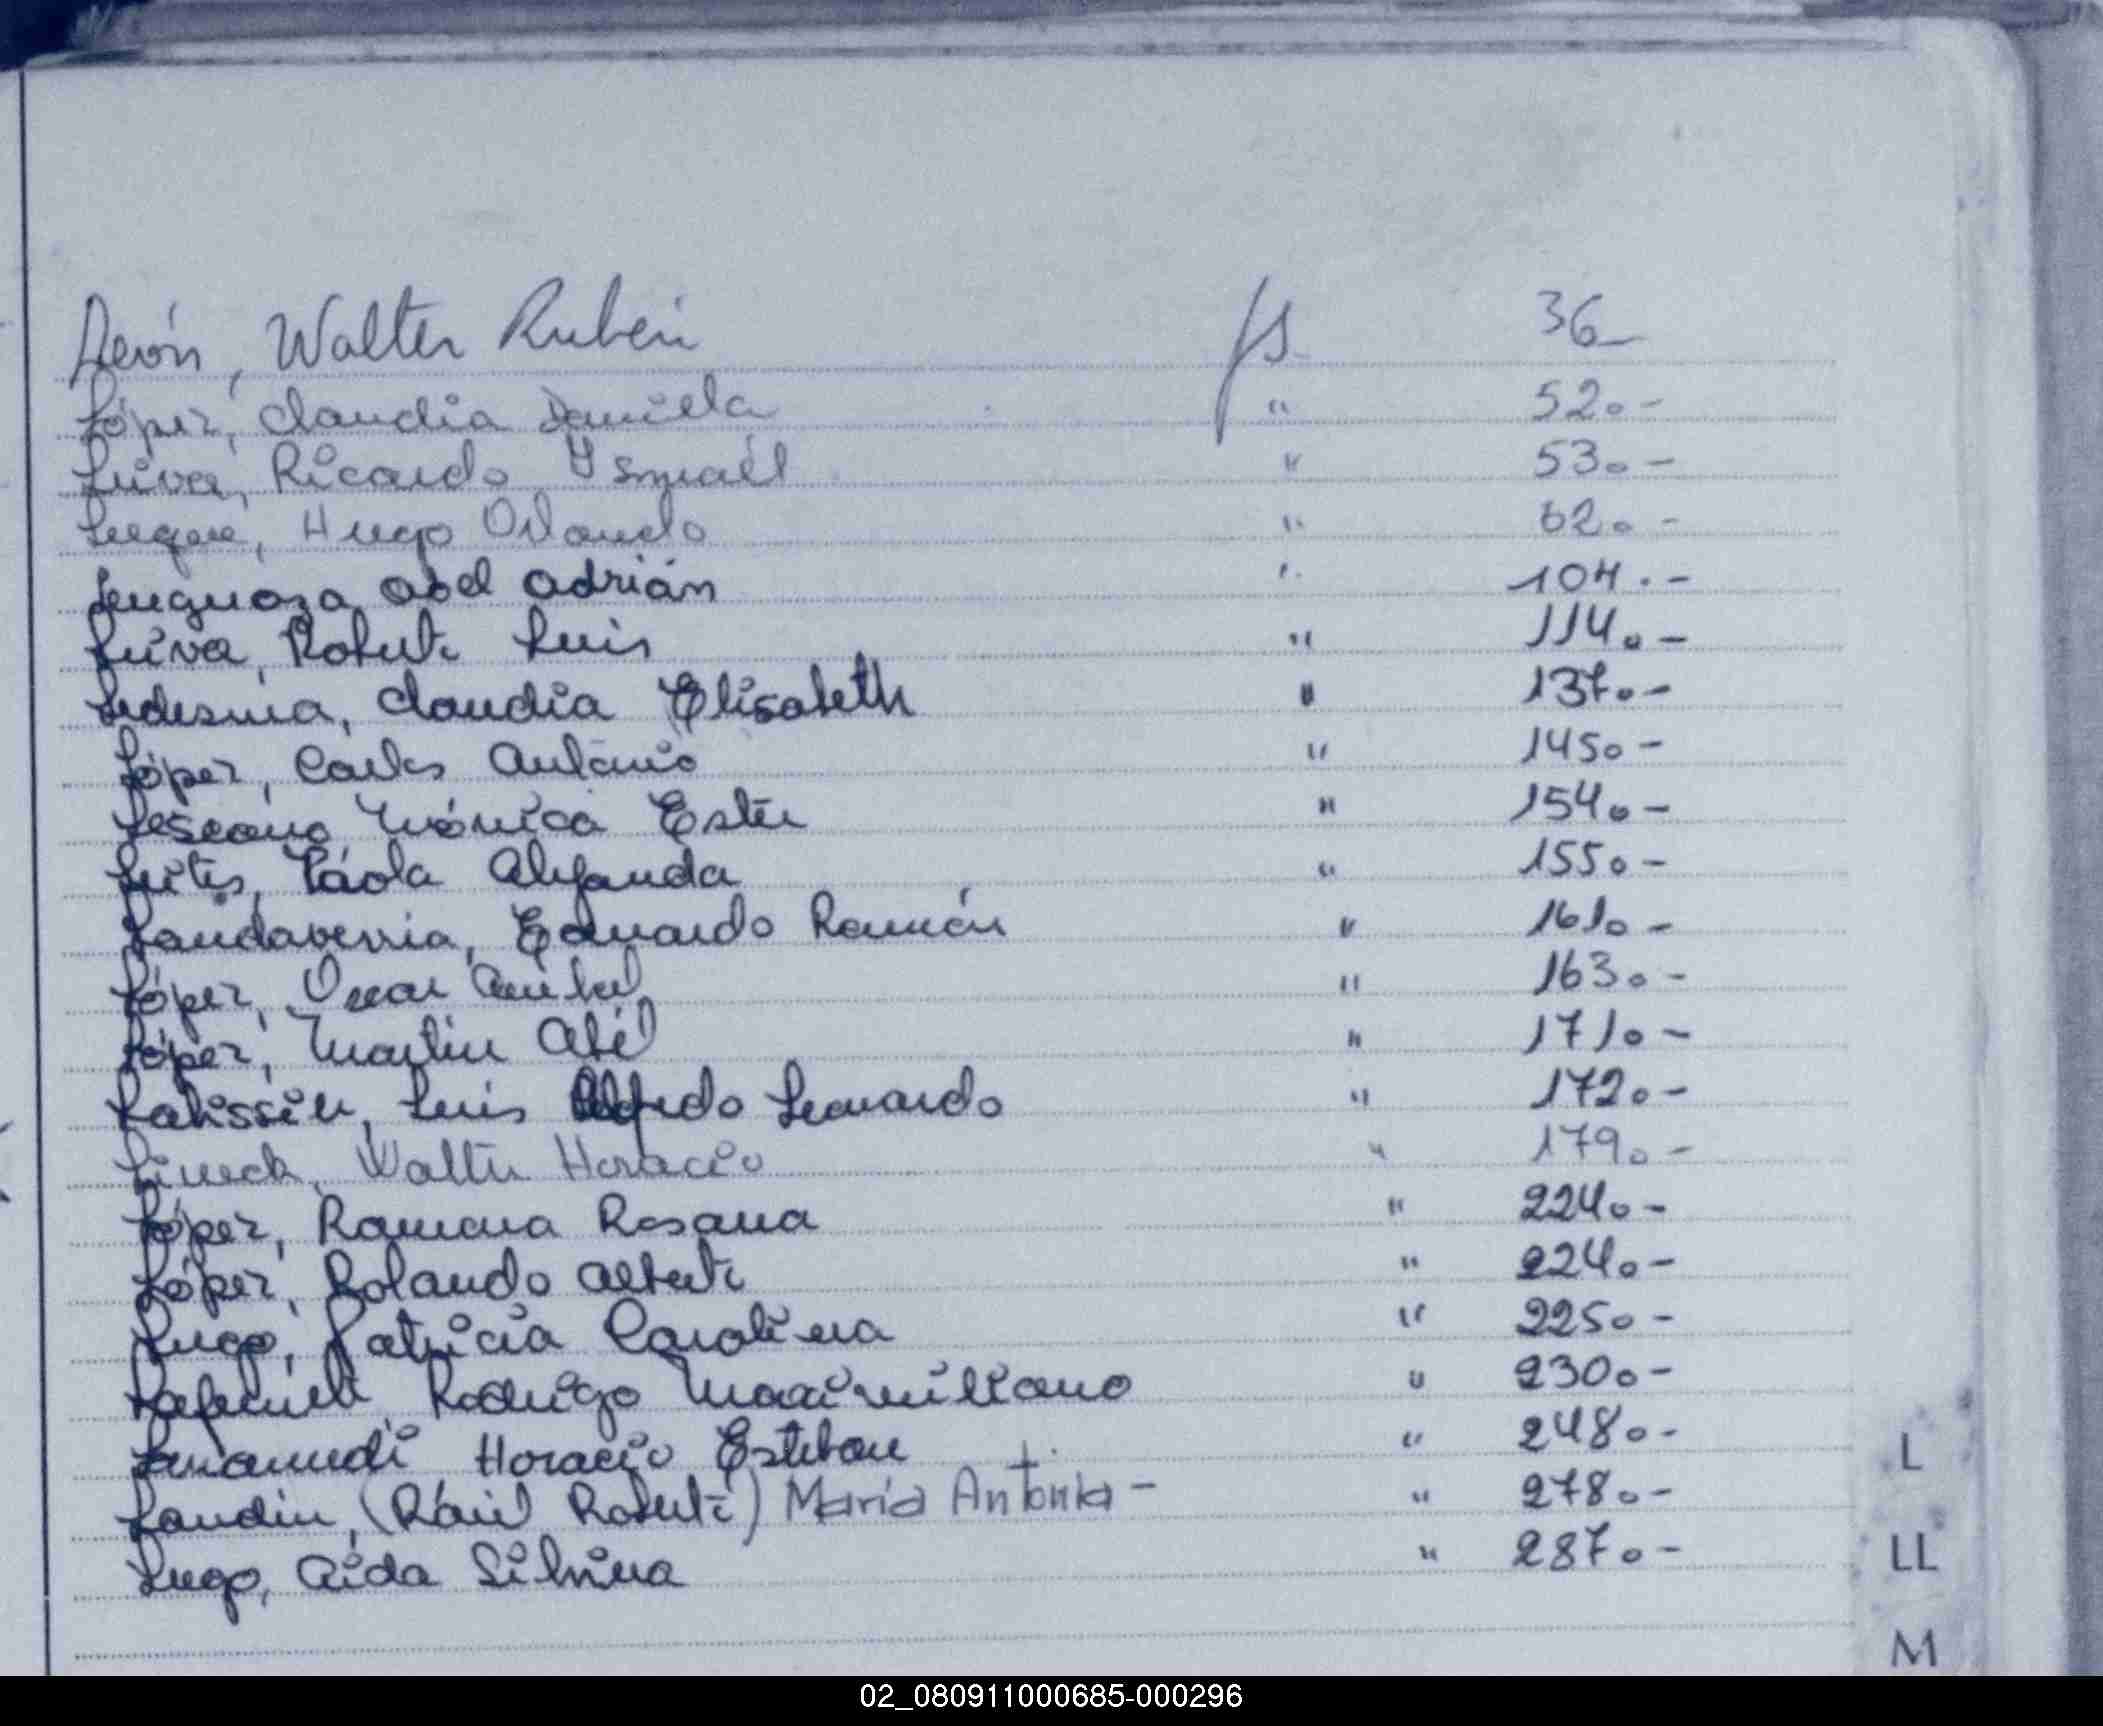 León, Walter Rubén fs. 36_
López, Claudia Daniela " 52.-
Leiva, Ricardo Ysmaél " 53.-
Luque, Hugo Orlando " 62.-
Abel Adrián " 104.-
Leiva, Roberto Luis " 114.-
Ledesma, Claudia Elisabeth " 137.-
López, Carlos Antonio " 145.-
Lescano Mónica Ester " 154.-
Leites, Páola Alejandra " 155.-
Landaverria, Eduardo Ramón " 161.-
López, Oscar Anibal " 163.-
López, Martin Abél " 171.-
Luis Alfredo Leonardo " 172.-
Lineck, Walter Horacio " 179.-
López, Ramona Rosana " 224.-
López, Rolando Alberto " 224.-
Lugo, Patricia Carolina " 225.-
Rodrigo Maximiliano " 230.-
Horacio Esteban " 248.-
Landin, (Raúl Roberto) María Antonia - " 278.-
Lugo, Aida Silvina " 287.-
L
LL
M
02_080911000685-000296